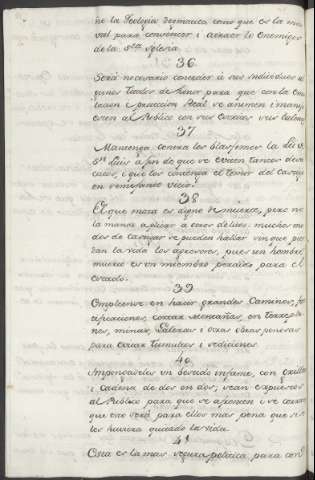 ñe la Teologia dogmatica como que es la mas
util para convencer i atraer lo Enemigos
de la S.ta Yglesia
36
Será necesario conceder à sus individuos al
gunos Grados de honor para que con la
i proteccion Real se animen i man
al Publico con sus
37
Mantenga contra los blasfemos la Lei de
S.n Luis a fin de que se eviten tantos desa
catos, i que los contenga el temor del castigo
en semejante vicio.
38
El que mata es digno de muerte, pero no
la manda aplicar a otros delitos: muchos mo
dos de castigar se pueden hallar sin que pier
dan la vida los agresores, pues un hombre
muerto es un miembro perdido para el
estado.
39
Empleense en hacer grandes Caminos, for
tificaciones, cortar Montañas, en Terraple
nes, minas, Galeras i otras obras penosas
para evitar Tumultos i sediciones.
40
Imponerles un vestido infame, con grillos
i Cadena de dos en dos, sean expuestos
al Publico para que se afrenten i se corran
que este será para ellos mas pena que si se
les huviera quitado la vida
41
Esta es la mas segura politica para con